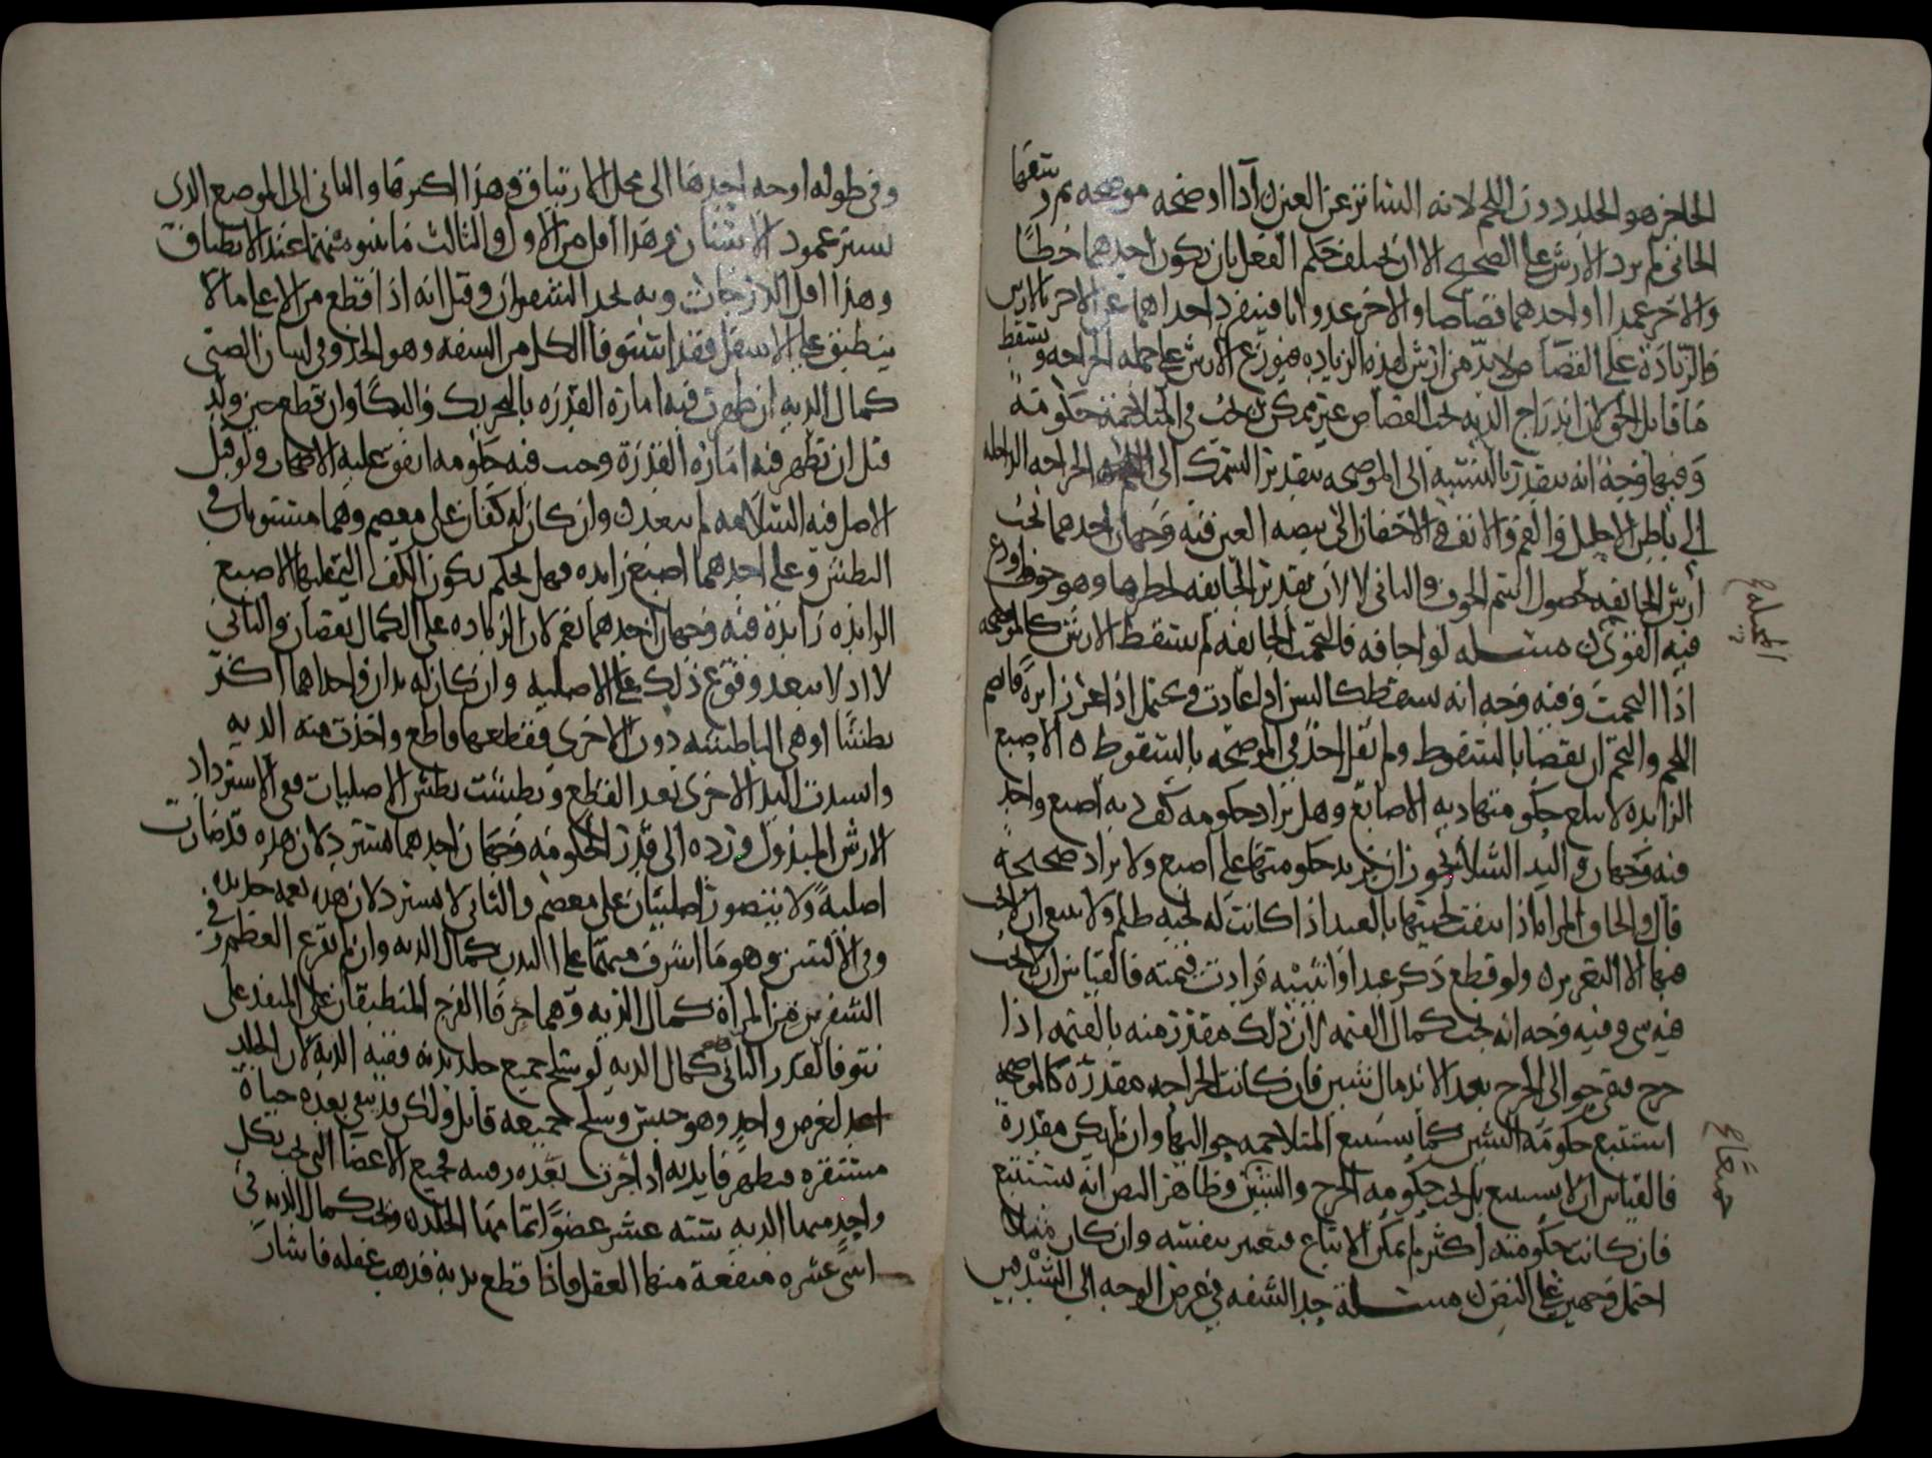 الحاجز هو الجلد دون اللحم لانه الساتر عن العين اما اذا اوضحه موضحه ثم وسعها
الجاني لم يزد الارش على الصحيح الا ان يختلف حكم الفعل بان يكون احدهما خطأ
والاخر عمدا او احدهما قصاصا والاخر عدوانا فينفرد احداهما عن الاخر بالارش
فالزيادة على القصاص لا بد من ارش لهذه الزيادة فيوزع الارش على جملة الجراحه ويسقط
ما قابل الحق لان اندراج الديه تحت القصاص غير ممكن يجب في المتلاحمة حكومة
وفيها وجه انه يتقدر بالنسبة الى الموضحه بتقدير السمك الجراحه الداخله
الى باطن الاحليل والفم والانف والاجفان الى بيضه العين فيه وجهان احدهما يجب
ارش الجائفه لحصول اسم الجوف والثاني لا لان تقدير الجائفه لخطرها وهو خوف
فيه القوى مسله لو اجافه فالتحمت الجائفه لم يسقط الارش كالموضحه
اذا التحمت وفيه وجه انه يسقط كالسن اذا عادت ويحتمل اذا غرز ابرة فانضم
اللحم والتحم ان يقضا بالسقوط ولم يقل احد في الموضحه بالسقوط ه الاصبع
الزايده لا يبلغ حكومتها دية الاصابع وهل يزاد حكومه كف دية اصبع واحد
فيه وجهان واليد الشلا يجوز ان يزيد حكومتها على اصبع ولا يزاد صحيحة
قال والحاق المراه اذا نتفت لحيتها بالعبد اذا كانت له لحيه ظلم ولا يبعد ان لا يجب
فيها الا التعزير ه ولو قطع ذكر عبد او انثييه فزادت قيمته فالقياس ان لا يجب
فيه شى وفيه وجه انه يجب كمال القيمه لان ذلك مقدر منه بالقيمه اذا
جرح فبقي حوالى الجرح بعد الاندمال شين فان كانت الجراحه مقدرة كالموضحه
استتبع حكومة الشين كما يستتبع المتلاحمه حواليها وان لم يكن مقدرة
فالقياس ان لا يستتبع بل يجب حكومه الجرح والشين وظاهر النص انه يستتبع
فان كانت حكومته اكثر لم يمكن الاتباع فيعتبر بنفسه وان كان مثلا
احتمل وجهين على النص ه مسلة حد الشفه في عرض الوجه الى الشدقين
وفي طوله اوجه احدها الى محل الارتتاق وهذا اكبرها والثاني الى الموضع الذي
يستر عمود الاسنان وهذا اقل من الاول والثالث ما ينبو منهما عند الانطباق
وهذا اقل الدرجات وبه يحد الشفران وقيل انه اذا قطع من الاعلى ما لا
ينطبق على الاسفل فقد استوفا الكل من الشفه وهو الحد وفي لسان الصبي
كمال الديه ان ظهرت فيه امارة القدره بالتحريك والبكا وان قطع حين ولد
قبل ان تظهر فيه امارة القدرة وجب فيه حكومه اتفق عليه الاصحاب ولو قيل
الاصل فيه السلامه لم يبعد ه وان كان له كفان على معصم وهما مستويان في
البطش وعلى احدهما اصبع زايده فهل يحكم بكون الكف التي عليها الاصبع
الزايده زايدة فيه وجهان احدهما نعم لان الزيادة على الكمال نقصان والثاني
لا اذ لا يبعد وقوع ذلك على الاصليه وان كان له يدان واحداهما اكثر
بطشا او هي الباطشه دون الاخرى فقطعها قاطع واخذت منه الديه
واشتدت اليد الاخرى بعد القطع وبطشت بطش الاصليات ففي استرداد
الارش المبذول ورده الى قدر الحكومه وجهان احدهما يسترد لان هذه قد صارت
اصلية ولا يتصور اصليتان على معصم والثاني لا يسترد لان هذه نعمه جديده
وفي الاليتين وهو ما اشرف منهما على البدن كمال الديه وان لم يقرع العظم وفي
الشفرين من المراة كمال الديه وهما حرفا الفرج المنطبقان على المنفذ
كمال الديه لو سلخ جميع جلد بدنه ففيه الديه لان الجلد
لغرض واحد وهو جنس وسلخ جميعه قاتل ولكن قد يبقى بعده حياة
مستقره فيظهر فايدته اذا حزت بعده رقبته فجميع الاعضا التي يجب بكل
واحد منها الديه ستة عشر عضوا تمامها الجلد ه ويجب كمال الديه في
اثنى عشره منفعة منها العقل فاذا قطع يديه فذهب عقله فاشار